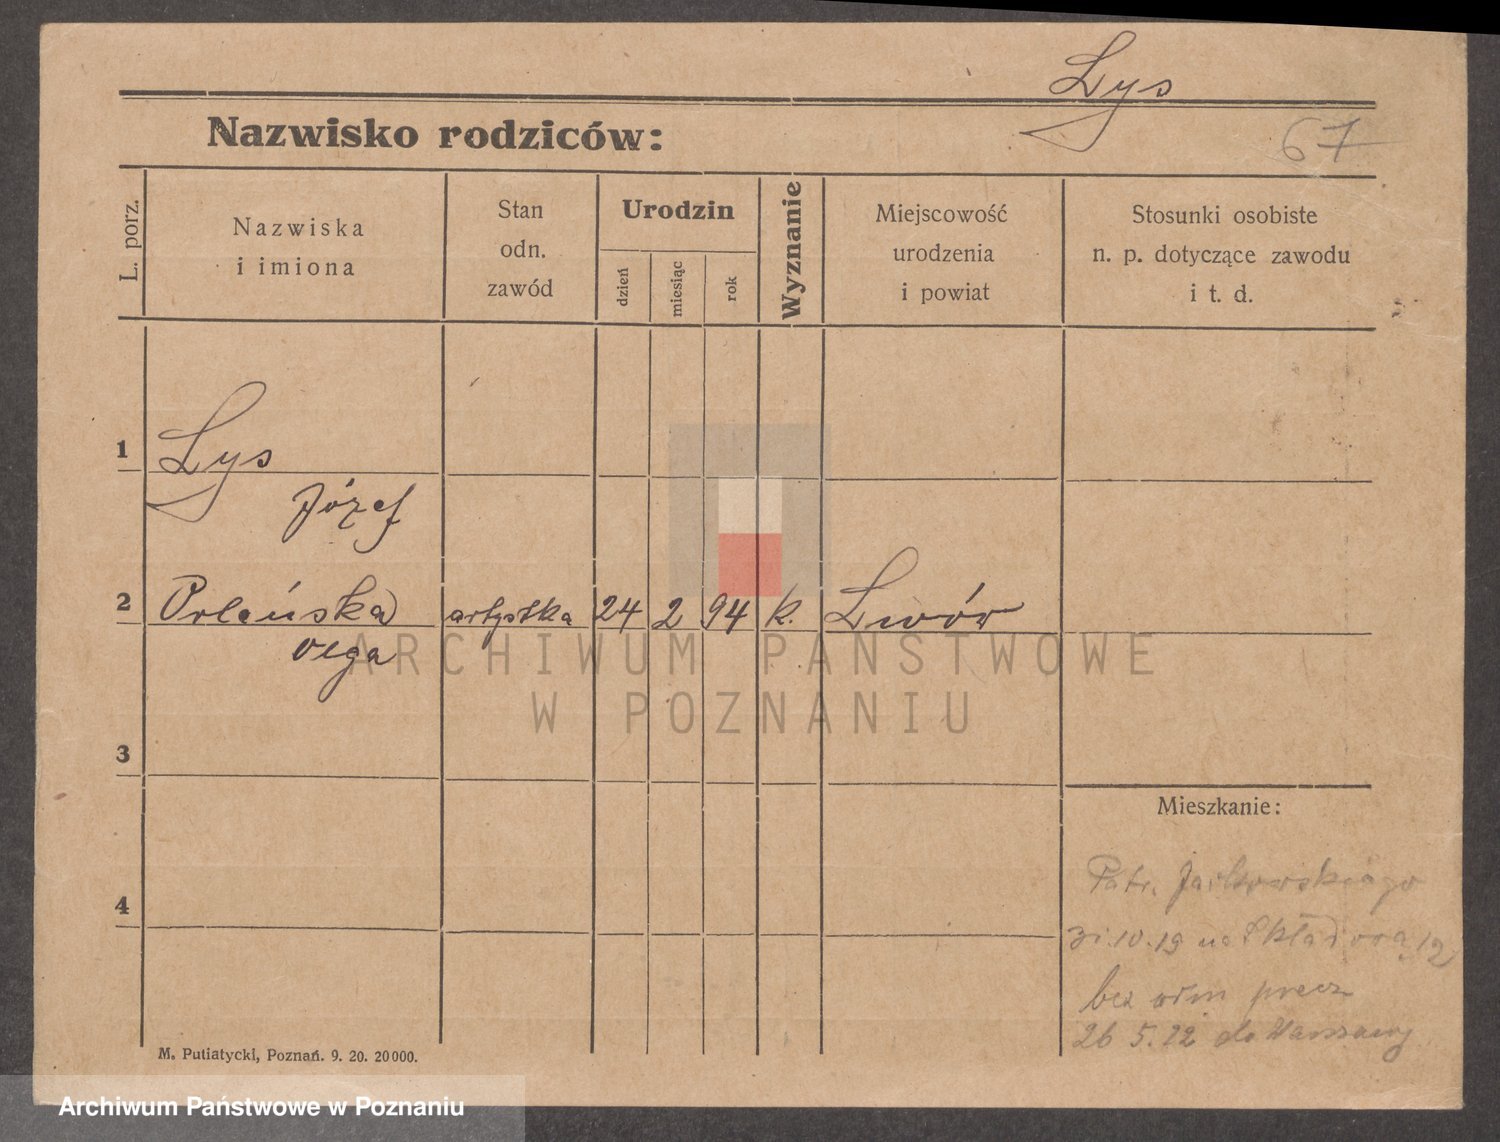 Lys
Nazwisko rodziców:
67
L. porz.
Nazwiska
i imiona
Stan
odn.
zawód
Urodzin
dzień
miesiąc
rok
Wyznanie
Miejscowość
urodzenia
i powiat
Stosunki osobiste
n. p. dotyczące zawodu
i t. d.
1
Lys
Józef
2
Orleńska artystka 24 2 94 k. Lwów
Olga
ARCHIWUM PAŃSTWOWE
W POZNANIU
3
Mieszkanie:
4
Patr. Jackowskiego
31.10.19 na Składową 12
bez precz
26 5.22 do Warszawy
M. Putiatycki, Poznań. 9. 20. 20000.
Archiwum Państwowe w Poznaniu